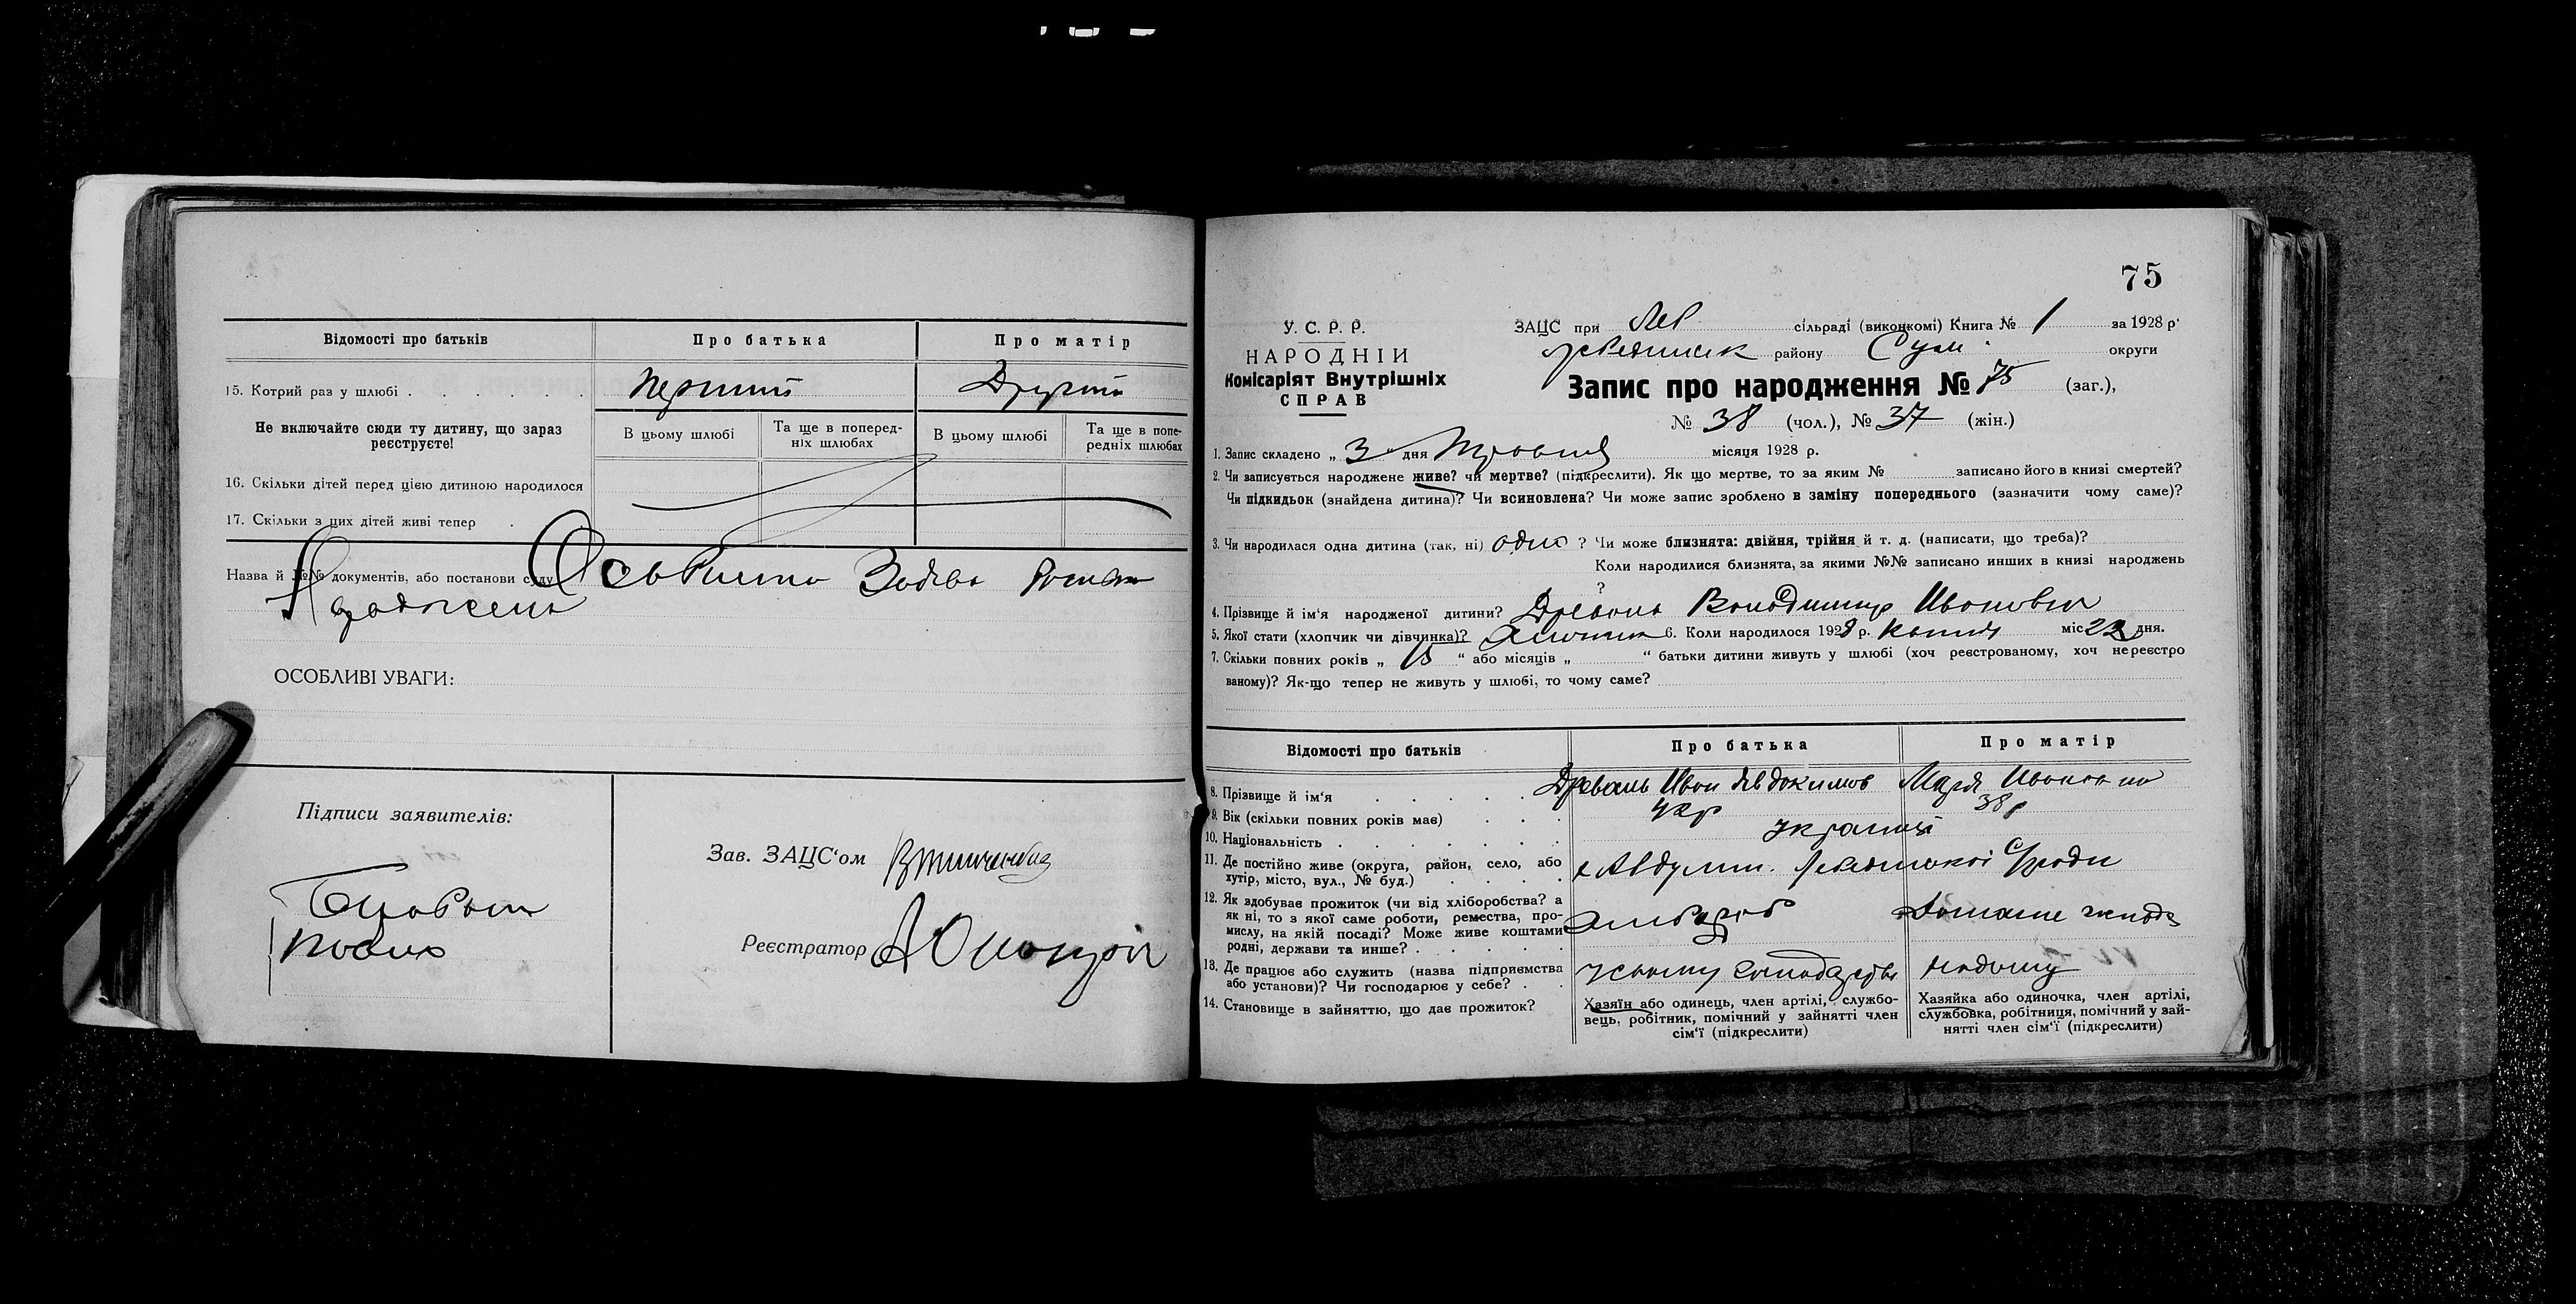 Відомості про батьків Про батька Про матір
15. Котрий раз у шлюбі . . . . . . Перший Другий
Не включайте сюди ту дитину, що зараз реєструєте!
В цьому шлюбі Та ще в поперед-
ніх шлюбах В цьому шлюбі Та ще в попе-
редніх шлюбах
16. Скільки дітей перед цією дитиною народилося
17. Скільки з цих дітей живі тепер .
Назва й №№ документів, або постанови суду
ОСОБЛИВІ УВАГИ:
Підписи заявителів:
Зав. ЗАЦС'ом
Реєстратор
75
У. С. Р. Р.
НАРОДНІЙ
Комісаріят Внутрішніх
СПРАВ
ЗАЦС при сільраді (виконкомі) Книга № 1 за 1928 р.
району Сум. округи
Запис про народження № 75 (заг.),
№ 38 (чол.), № 37 (жін.)
1. Запис складено „ 3 " дня Травня місяця 1928 р.
2. Чи записується народжене живе? чи мертве? (підкреслити). Як що мертве, то за яким № записано його в книзі смертей?
Чи підкидьок (знайдена дитина)? Чи всиновлена? Чи може запис зроблено в заміну попереднього (зазначити чому саме)?
3. Чи народилася одна дитина (так, ні) одна ? Чи може близнята: двійня, трійня й т. д. (написати, що треба)?
Коли народилися близнята, за якими №№ записано инших в книзі народжень
?
4. Прізвище й ім'я народженої дитини? Древаль Володимир Иванович
5. Якої стати (хлопчик чи дівчинка)? 6. Коли народилося 1928 р. квітня міс 23 дня.
7. Скільки повних років „ 15 " або місяців „ " батьки дитини живуть у шлюбі (хоч реєстрованому, хоч нереєстро
ваному)? Як-що тепер не живуть у шлюбі, то чому саме?
Відомості про батьків Про батька Про матір
8. Прізвище й ім'я . . . . . Древаль Иван Явдокимов Марія Ивановна
9. Вік (скільки повних років має) . . . 38 р
10. Національність . . . . . . . українці
11. Де постійно живе (округа, район, село, або
хутір, місто, вул., № буд.) . . . .
12. Як здобуває прожиток (чи від хліборобства? а
як ні, то з якої саме роботи, ремества, про-
мислу, на якій посаді? Може живе коштами
родні, держави та инше? . . . . . хлібороб
13. Де працює або служить (назва підприємства
або установи)? Чи господарює у себе? . .
14. Становище в зайняттю, що дає прожиток?
Хазяїн або одинець, член артілі, службо-
вець, робітник, помічний у зайнятті член
сім'ї (підкреслити)
Хазяйка або одиночка, член артілі,
службовка, робітниця, помічний у зай-
нятті член сім'ї (підкреслити)